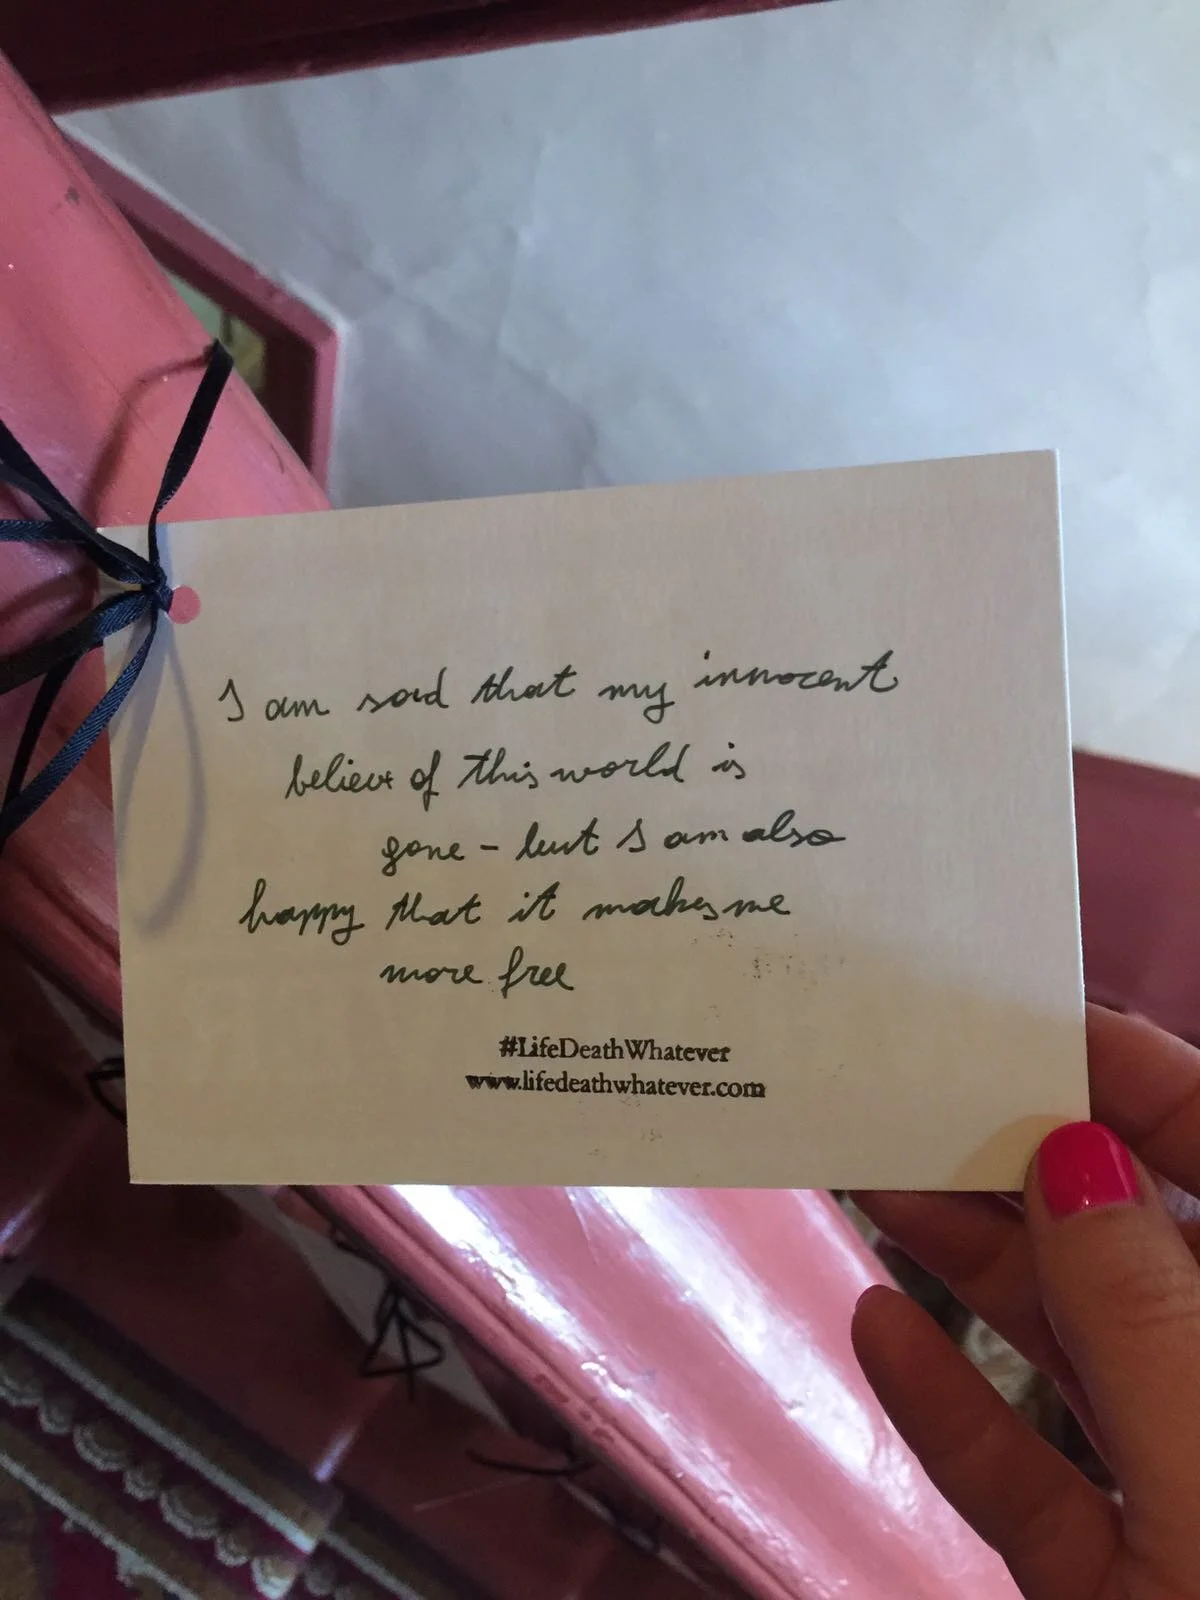 I am sad that my innocent
believe of this world is
gone - but I am also
happy that it makes me
more free
#LifeDeathWhatever
www.lifedeathwhatever.com